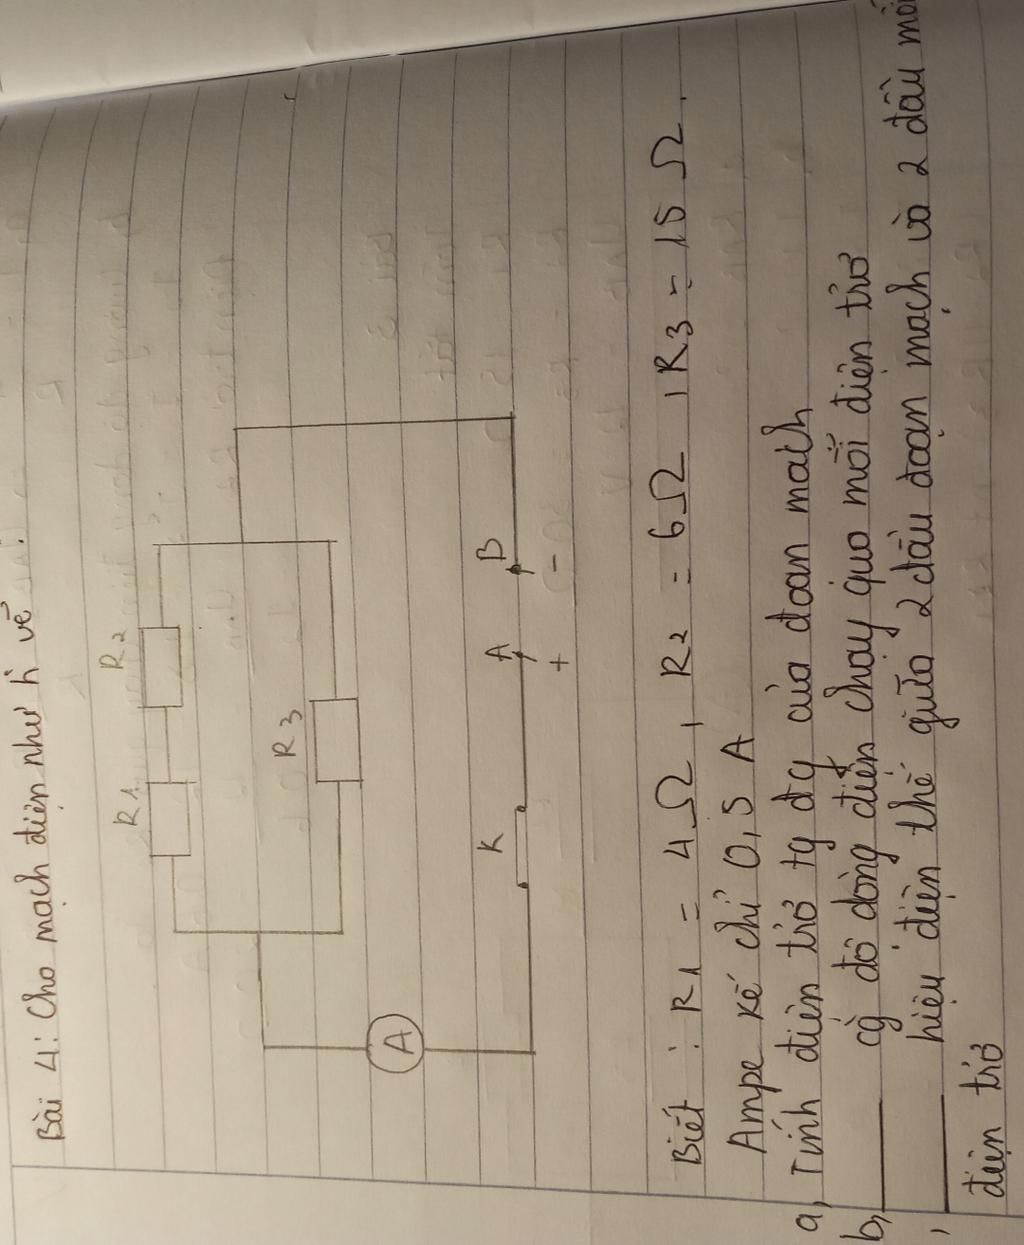 Bài 4: Cho mạch điện như h vẽ:
R1 R2
R3
A
K A B
+ -
Biết : R1 = 4Ω, R2 = 6Ω, R3 = 15 Ω.
Ampe kế chỉ 0,5 A
a, Tính điện trở tg đg của đoan mach
b, cg độ dòng điện chay qua mỗi điện trở
, hiệu điện thế giữa 2 đầu đoạn mạch và 2 đầu mỗi
điện trở